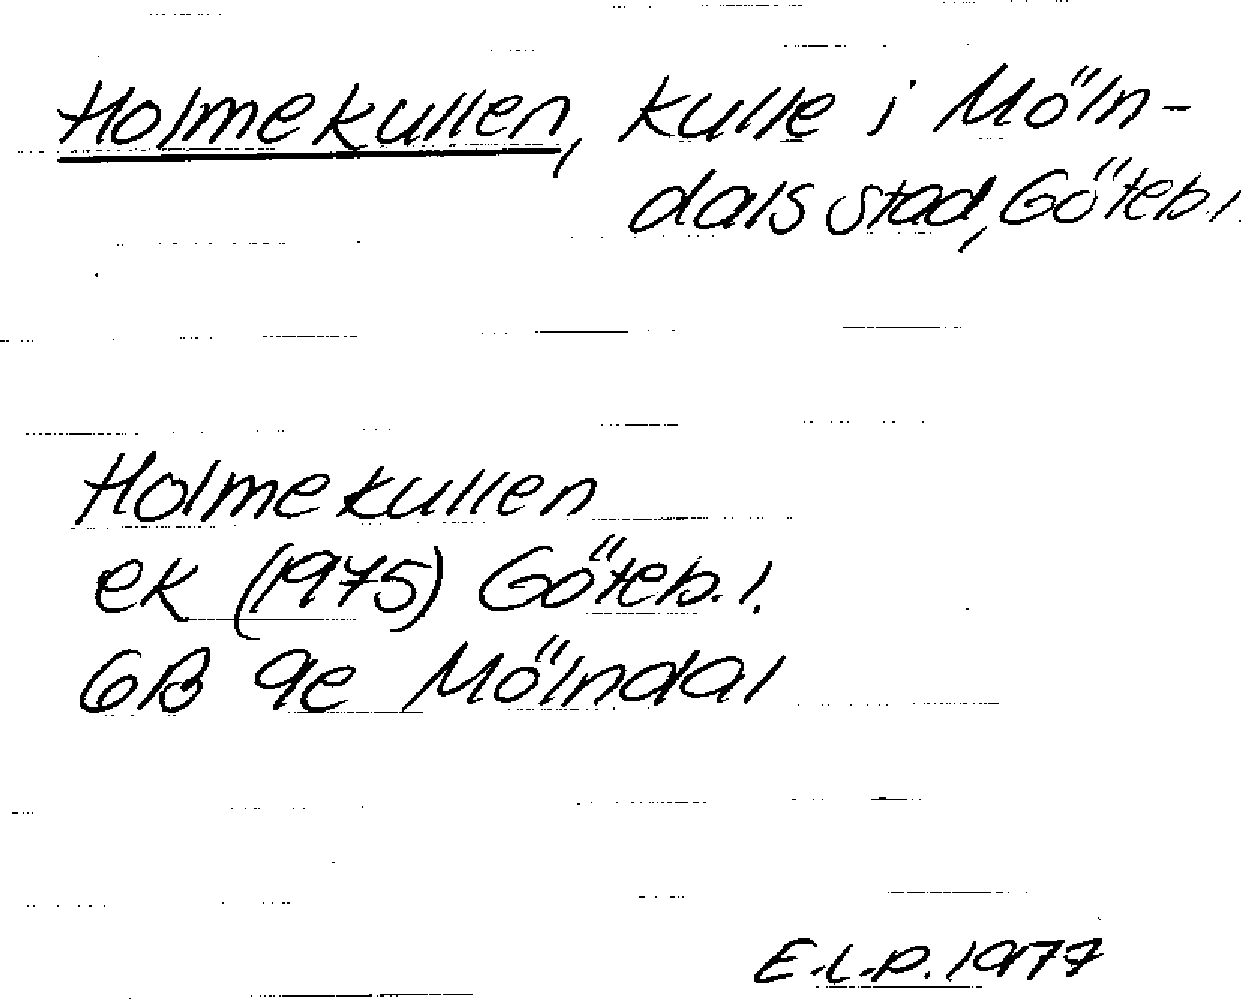 Holmekullen, kulle i Möln-
dals stad, Göteb. l.
Holmekullen
ek (1975) Göteb. l.
6B 9e Mölndal
E.L.P. 1977